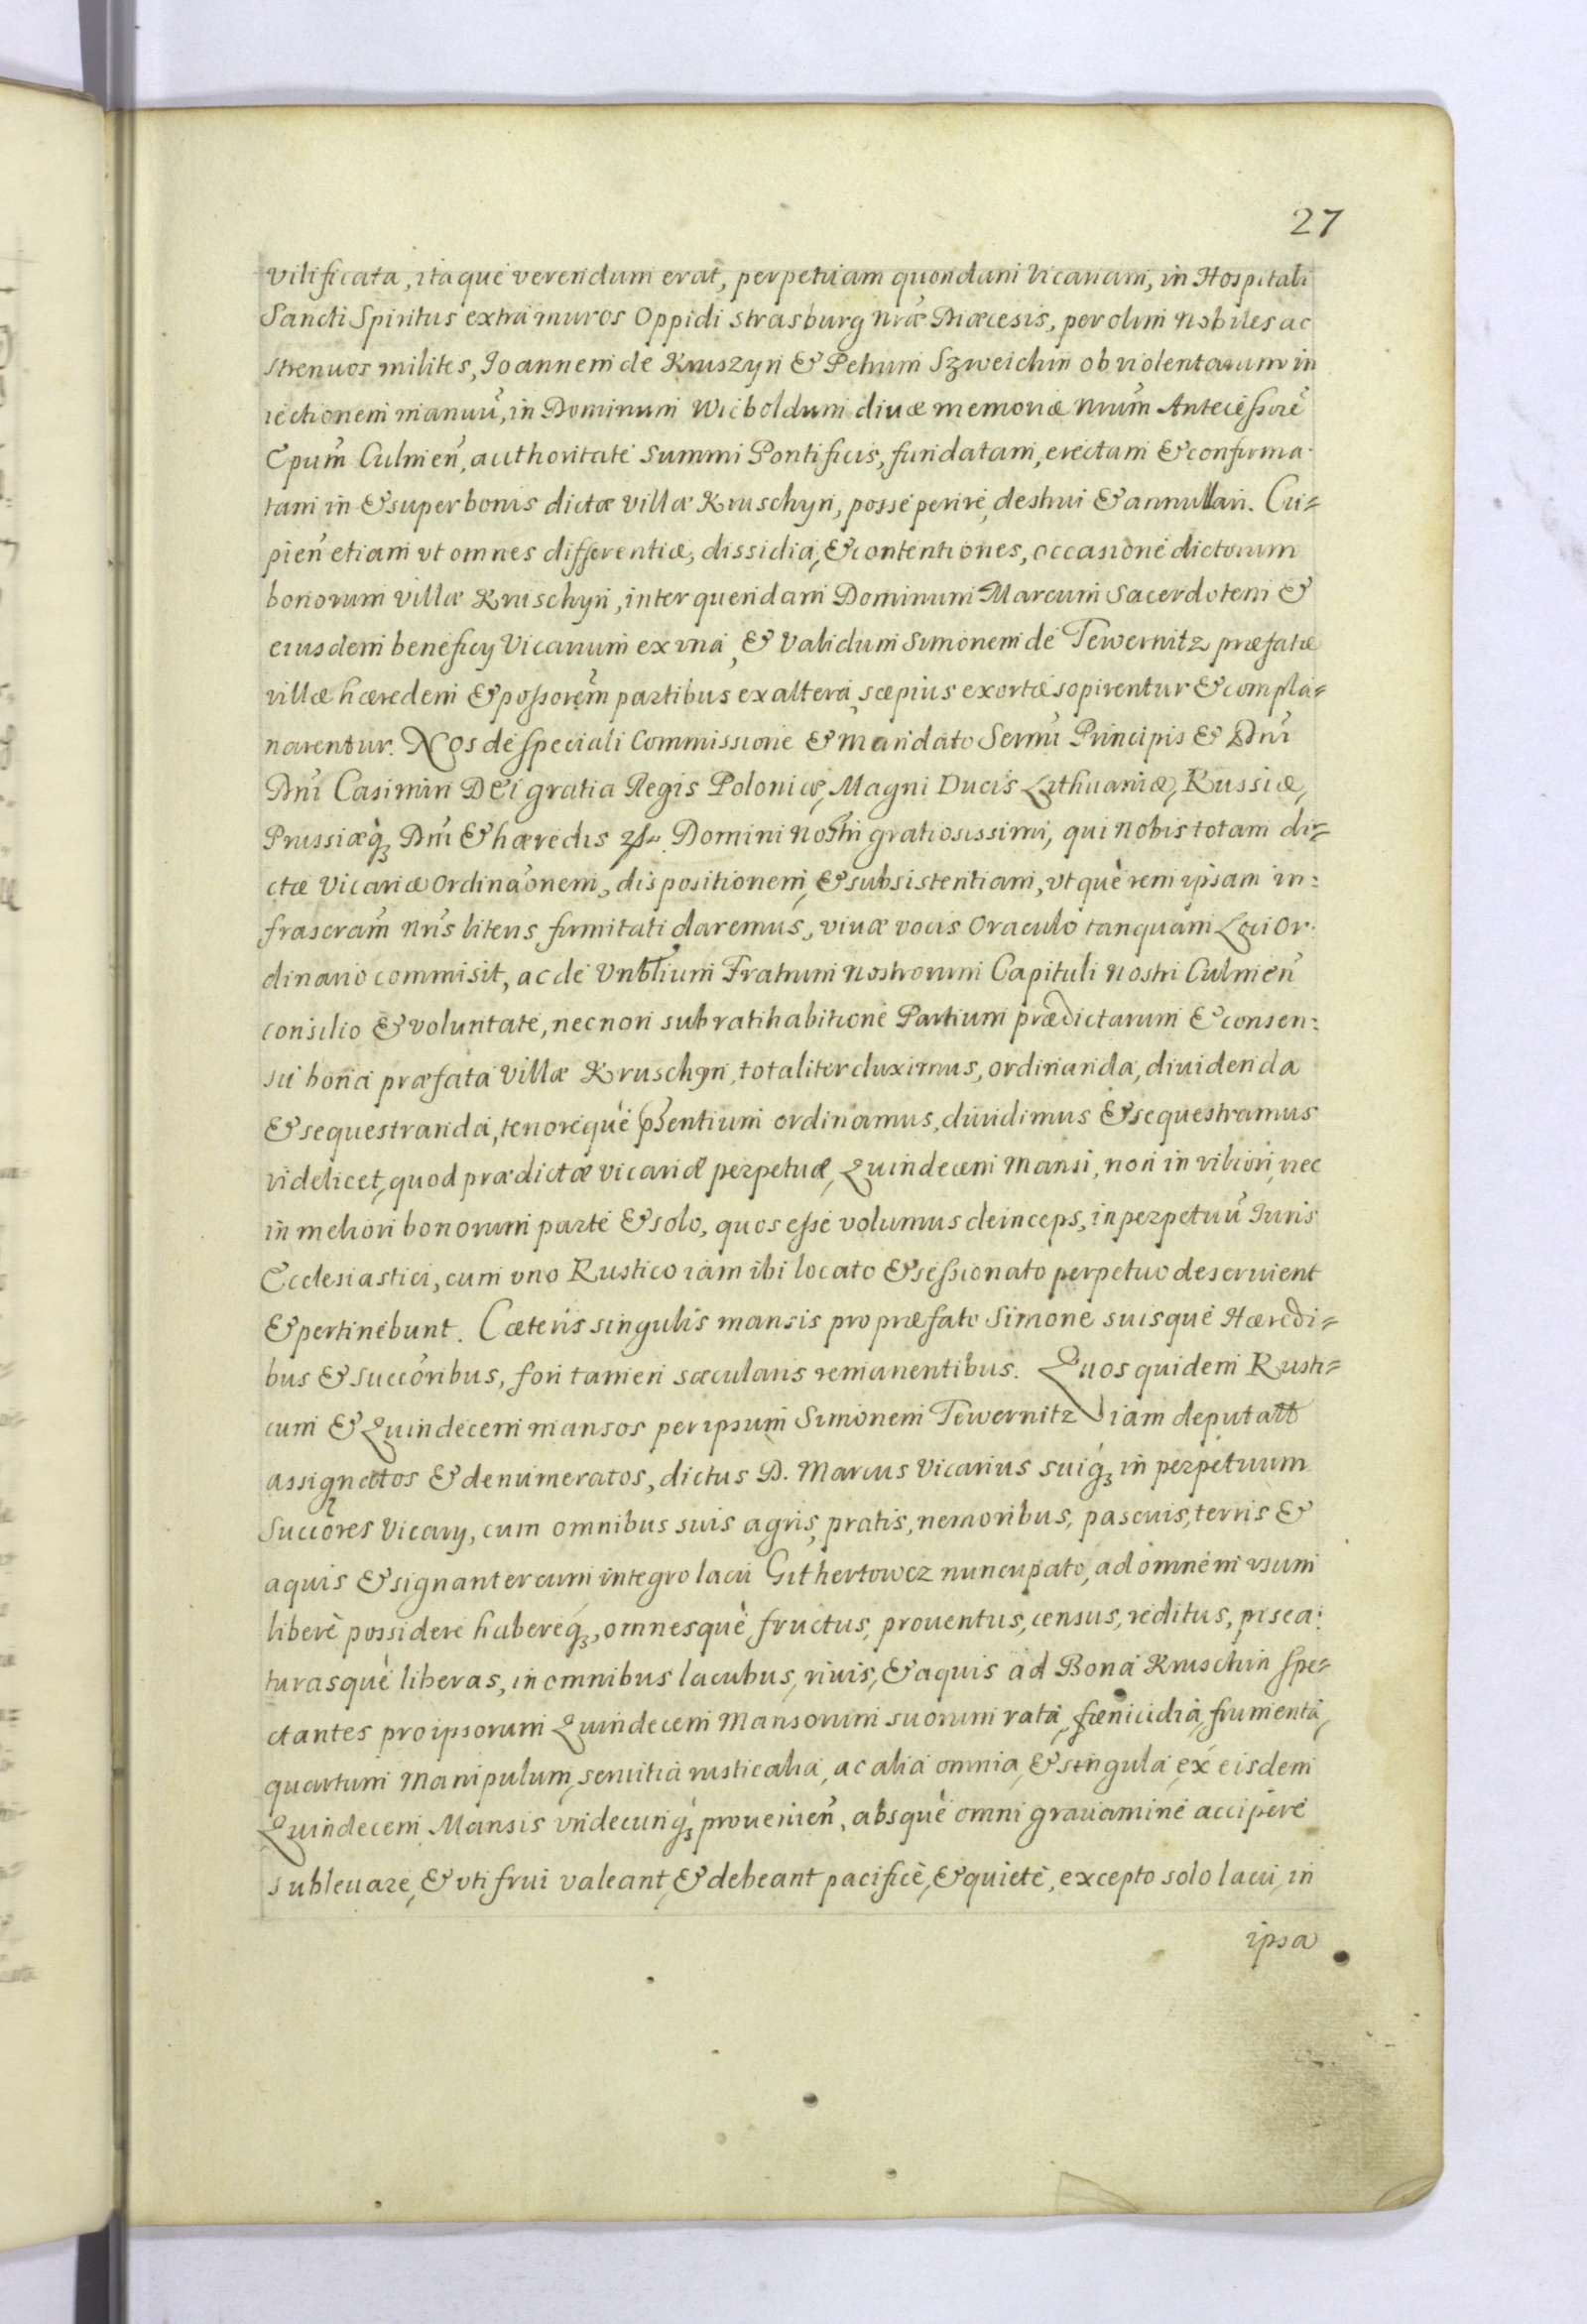 27
vilificata, itaque verendum erat, perpetuam quondam Vicariam, in Hospitali
Sancti Spiritus extra muros Oppidi Strasburg nræ Diæcesis, per olim Nobiles ac
strenuos milites, Joannem de Kruszyn & Petrum Szweichin ob violentarum in
iectionem manuũ, in Dominum Wicboldum diuæ memoriæ nrum̃ Antecessorẽ
Epum̃ Culmeñ, authoritate Summi Pontificis, fundatam, erectam & confirma-
tam in & super bonis dictæ villæ Kruschyn, posse perire, destrui & annullari. Cu=
pieñ etiam vt omnes differentiæ, dissidia, & contentiones, occasione dictorum
bonorum villæ Kruschyn, inter quendam Dominum Marcum Sacerdotem &
eiusdem beneficy Vicarium ex vna, & Validum Simonem de Tewernitz præfatæ
villæ hæredem & possorem̃ partibus ex altera, sæpius exortæ sopirentur & compla=
narentur. Nos de speciali Commissione & mandato Sermi Principis & Dni
Dni Casimiri Dei gratia Regis Poloniæ, Magni Ducis Lithuaniæ, Russiæ,
Prussiæq; Dni & hæredis etc. Domini nostri gratiosissimi, qui nobis totam di=
ctæ Vicariæ ordinaõnem, dispositionem, & subsistentiam, vt què rem ipsam in:
frascram̃ nris literis firmitati daremus, viuæ vocis Oraculo tanquam Loci Or-
dinario commisit, ac de Vnblium Fratrum nostrorum Capituli nostri Culmeñ
consilio & voluntate, necnon sub ratihabitione Partium prædictarum & consen:
su bona præfata Villæ Kruschyn, totaliter duximus, ordinanda, diuidenda
& sequestranda, tenorequè pñsentium ordinamus, diuidimus & sequestramus
videlicet, quod prædictæ vicariæ perpetuæ, Quindecem Mansi, non in viliori, nec
in meliori bonorum parte & solo, quos esse volumus deinceps, in perpetuũ Juris
Ecclesiastici, cum vno Rustico iam ibi locato & sessionato perpetuo deseruient
& pertinebunt. Cæteris singulis mansis pro præfato Simone suisque Hæredi=
bus & succõribus, fori tamen sæcularis remanentibus. Quos quidem Rusti=
cum & Quindecem mansos per ipsum Simonem Tewernitz iam deputatos
assignatos & denumeratos, dictus D. Marcus Vicarius suiq; in perpetuum
Succores Vicary, cum omnibus suis agris, pratis, nemoribus, pascuis, terris &
aquis & signanter cum integro lacu Githertowcz nuncupato, ad omnem vsum
liberè possidere habereq;, omnesquè fructus, prouentus, census, reditus, pisca:
turasquè liberas, in omnibus lacubus, riuis, & aquis ad Bona Kruschin spe=
ctantes pro ipsorum Quindecem Mansorum suorum rata, fœnicidia, frumenta,
quartum Manipulum, seruitia rusticalia, ac alia omnia, & singula, ex eisdem
Quindecem Mansis vndecunq; prouenieñ, absquè omni grauamine accipere
subleuare, & vti frui valeant, & debeant pacificè, & quietè, excepto solo lacu, in
ipsa